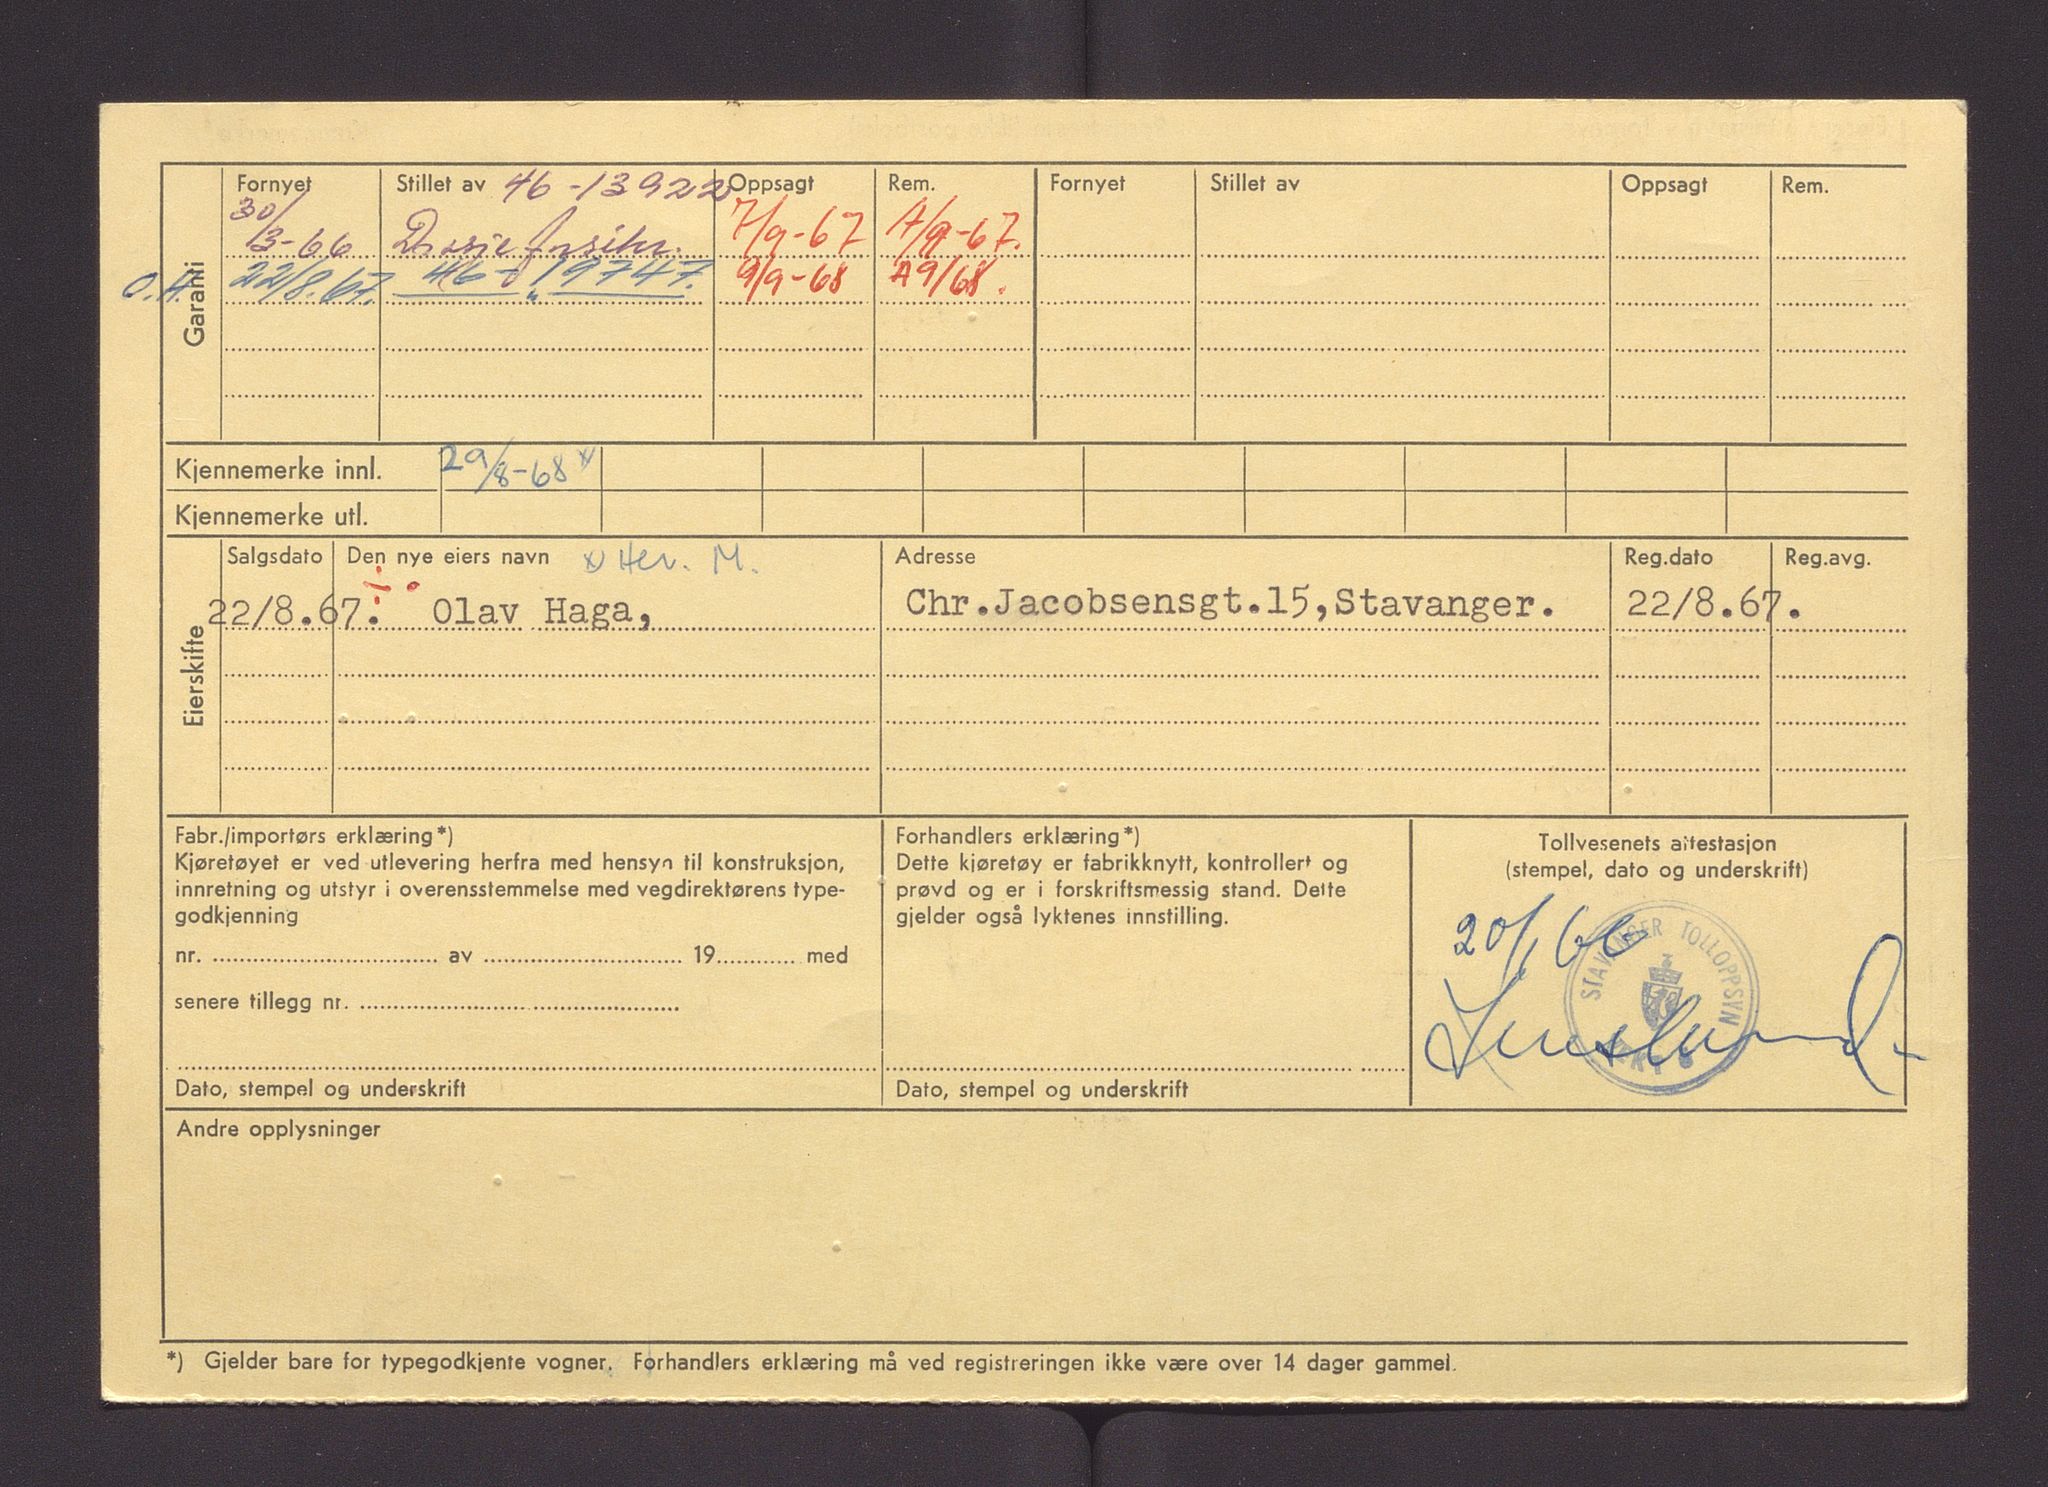 Garanti
Fornyet Stillet av 46-13922 Oppsagt Rem. Fornyet Stillet av Oppsagt Rem.
30/3-66 7/9-67 A/9-67.
O.H. 22/8.67. 46-19747. 9/9-68 A9/68.
Kjennemerke innl. 29/8-68 x
Kjennemerke utl.
Eierskifte
Salgsdato Den nye eiers navn x Her. M. Adresse Reg.dato Reg.avg.
22/8.67. ÷. Olav Haga, Chr.Jacobsensgt.15,Stavanger. 22/8.67.
Fabr./importørs erklæring*)
Kjøretøyet er ved utlevering herfra med hensyn til konstruksjon,
innretning og utstyr i overensstemmelse med vegdirektørens type-
godkjenning
nr. av 19 med
senere tillegg nr.
Dato, stempel og underskrift
Forhandlers erklæring*)
Dette kjøretøy er fabrikknytt, kontrollert og
prøvd og er i forskriftsmessig stand. Dette
gjelder også lyktenes innstilling.
Dato, stempel og underskrift
Tollvesenets attestasjon
(stempel, dato og underskrift)
STAVANGER TOLLOPPSYN
Andre opplysninger
*) Gjelder bare for typegodkjente vogner. Forhandlers erklæring må ved registreringen ikke være over 14 dager gammel.